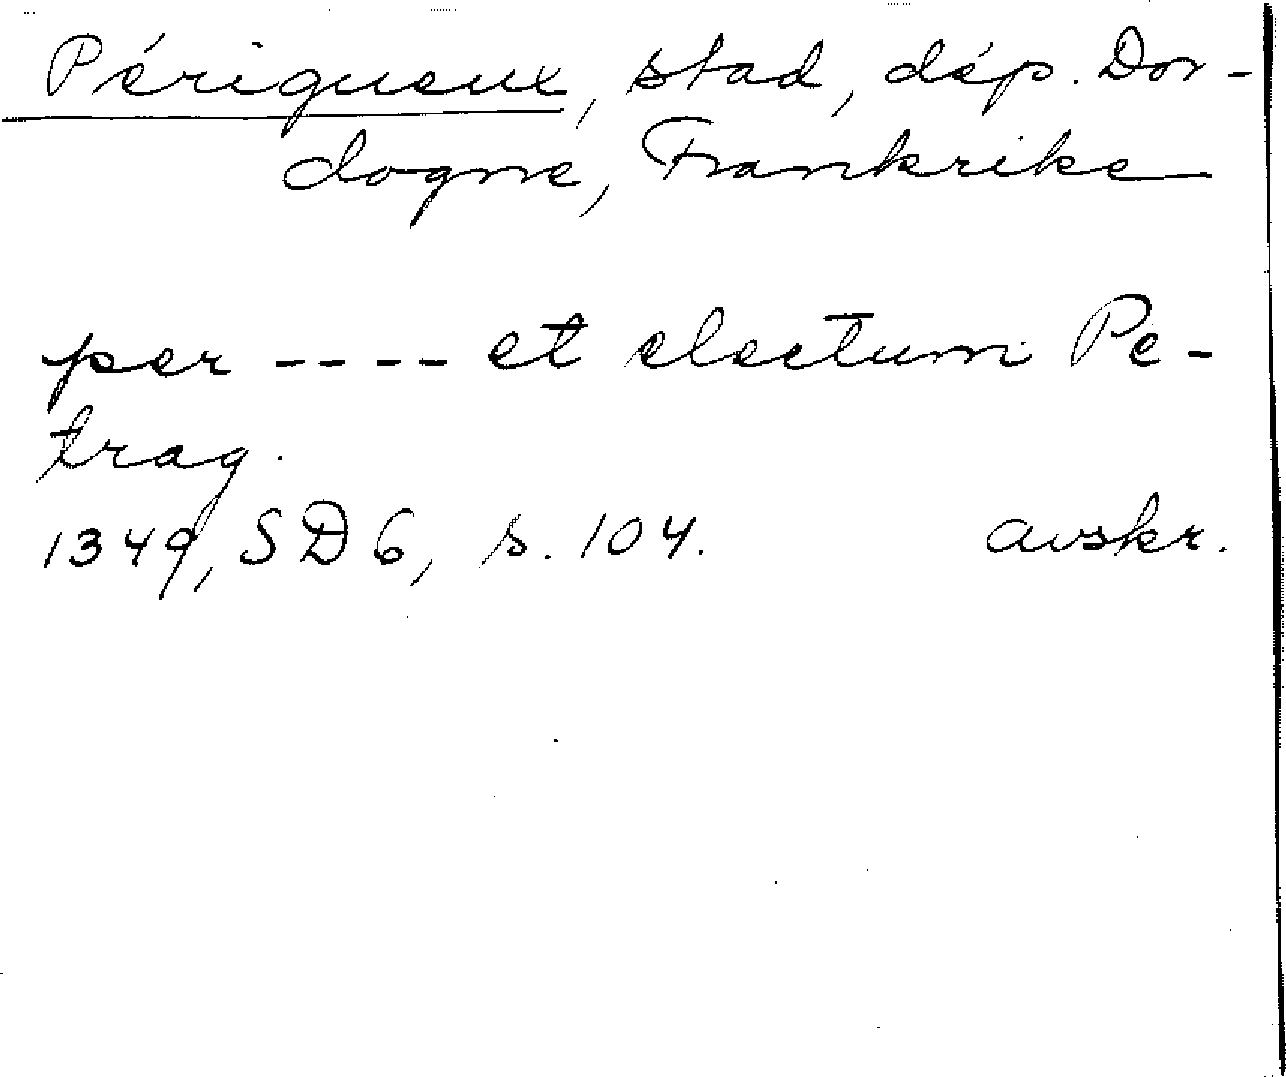 Périgueux, stad, dép. Dor-
dogne, Frankrike
per ---- et electum Pe-
trag.
1349, SD 6, s. 104. avskr.